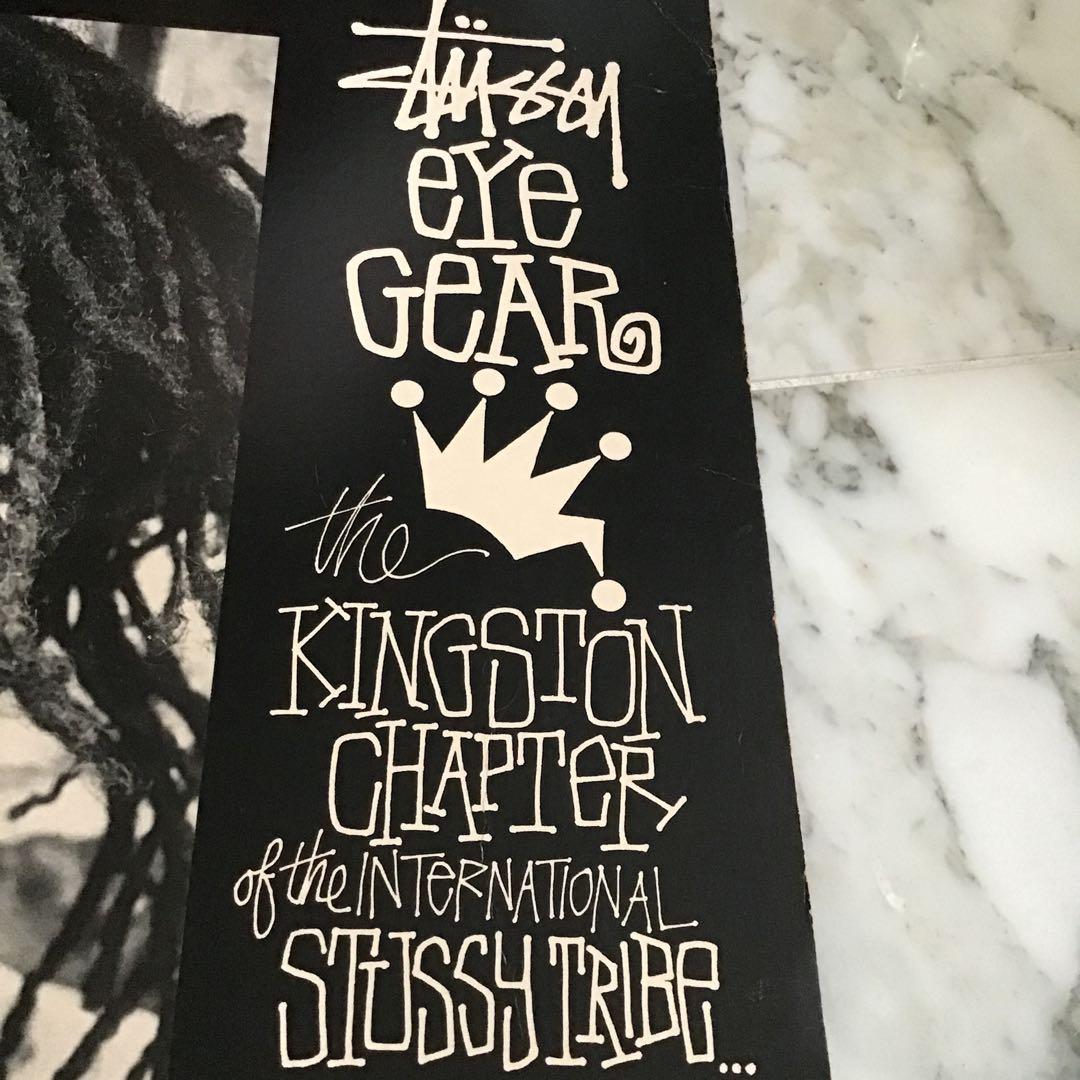 Stüssy
eYe
GeAR
the
KINGSTON
CHAPTeR
of the INTeRNATIONAL
STUSSY TRIBe...